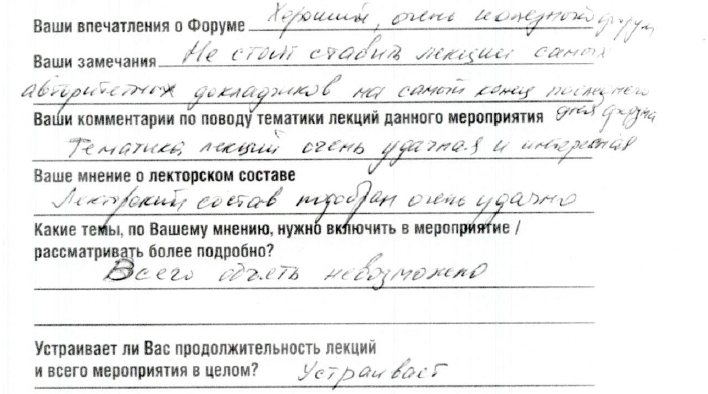 Ваши впечатления о Форуме Хороший, очень полезный форум
Ваши замечания Не стоит ставить лекции самых
авторитетных докладчиков на самый конец последнего
дня форума
Ваши комментарии по поводу тематики лекций данного мероприятия
Тематика лекций очень удачная и интересная
Ваше мнение о лекторском составе
Лекторский состав подобран очень удачно
Какие темы, по Вашему мнению, нужно включить в мероприятие /
рассматривать более подробно?
Всего объять невозможно
Устраивает ли Вас продолжительность лекций
и всего мероприятия в целом? Устраивает